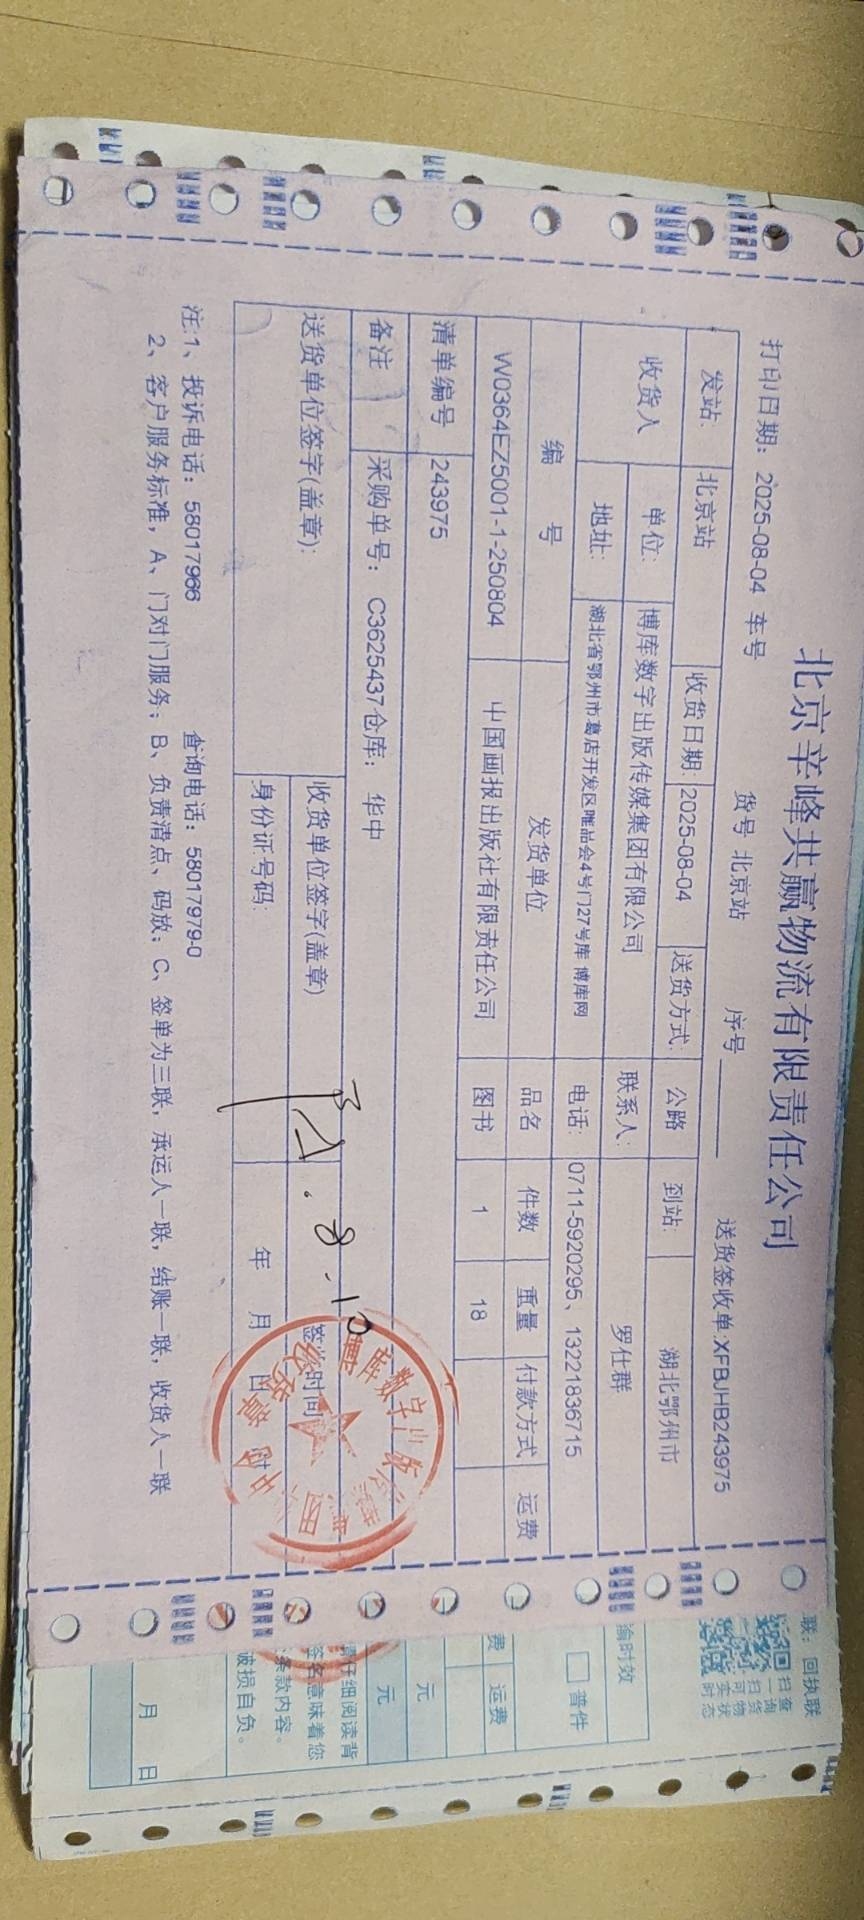 北京辛峰共赢物流有限责任公司
打印日期: 2025-08-04 车号 货号 北京站 序号 送货签收单:XFBJHB243975
发站: 北京站 收货日期: 2025-08-04 送货方式: 公路 到站: 湖北鄂州市
收货人 单位: 博库数字出版传媒集团有限公司 联系人: 罗仕群
地址: 湖北省鄂州市葛店开发区唯品会4号门27号库 博库网 电话: 0711-5920295、13221836715
编号 发货单位 品名 件数 重量 付款方式 运费
W0364EZ5001-1-250804 中国画报出版社有限责任公司 图书 1 18
清单编号 243975
备注 采购单号: C3625437仓库: 华中
送货单位签字(盖章): 收货单位签字(盖章) 签收时间
身份证号码: 年 月 日 时
8.10
博库数字出
注:1、投诉电话: 58017966 查询电话: 58017979-0
2、客户服务标准, A、门对门服务; B、负责清点、码放; C、签单为三联, 承运人一联, 结账一联, 收货人一联
联: 回执联
扫查
一询
扫货
可物
实状
时态
输时效
普件
费 运费
元
元
请仔细阅读背
签名意味着您
条款内容。
破损自负。
月 日